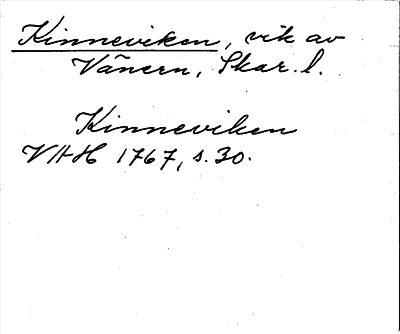 Kinneviken, vik av
Vänern, Skar. l.
Kinneviken
VAH 1767, s. 30.